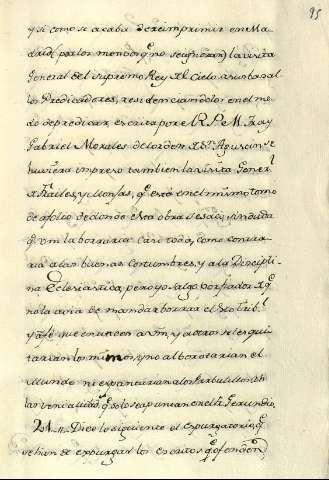 95
y si como se acaba de reimprimir en Ma-
drid (por los mendos q.e no se ignoran) la visita
General del Supremo Rey del Cielo a su tribunal
los Predicadores, residenciandolos en el mo-
do de predicar, escrita por el R. P. M. Fray
Gabriel Morales de la orden de S.n Agustin se
huviera impreso tambien la visita Gener.l
de Frailes, y Monjas, q.e està en el mismo tomo
de afolio de donde esta obra se sacò, sin duda
q.e Vm. la borraria casi toda, como contra-
ria a las buenas costumbres, y a la Discipli-
na Eclesiastica, pero yo salgo por fiador de q.e
no la avia de mandar borrar el S.to Trib.l
y à fè que en caso a Vm, y a otros se les qui-
tarian los mismos, y no alborotarian el
Mundo ni espantarian a los Parbulillos, con
las venialidad.s q.e solo se apuntan en el Fr. Gerundio.
21.. Dice lo siguiente el expurgatorio, q.e
se han de expurgar los escritos q.e ofenden